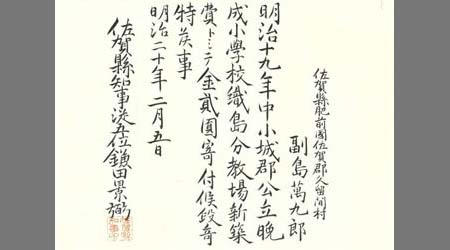 佐賀縣肥前國佐賀郡久留間村
副島萬九郎
明治十九年中小城郡公立晩
成小學校織島分教場新築
費トシテ金貳圓寄付候段奇
特候事
明治二十年二月五日
佐賀縣知事從五位鎌田景弼